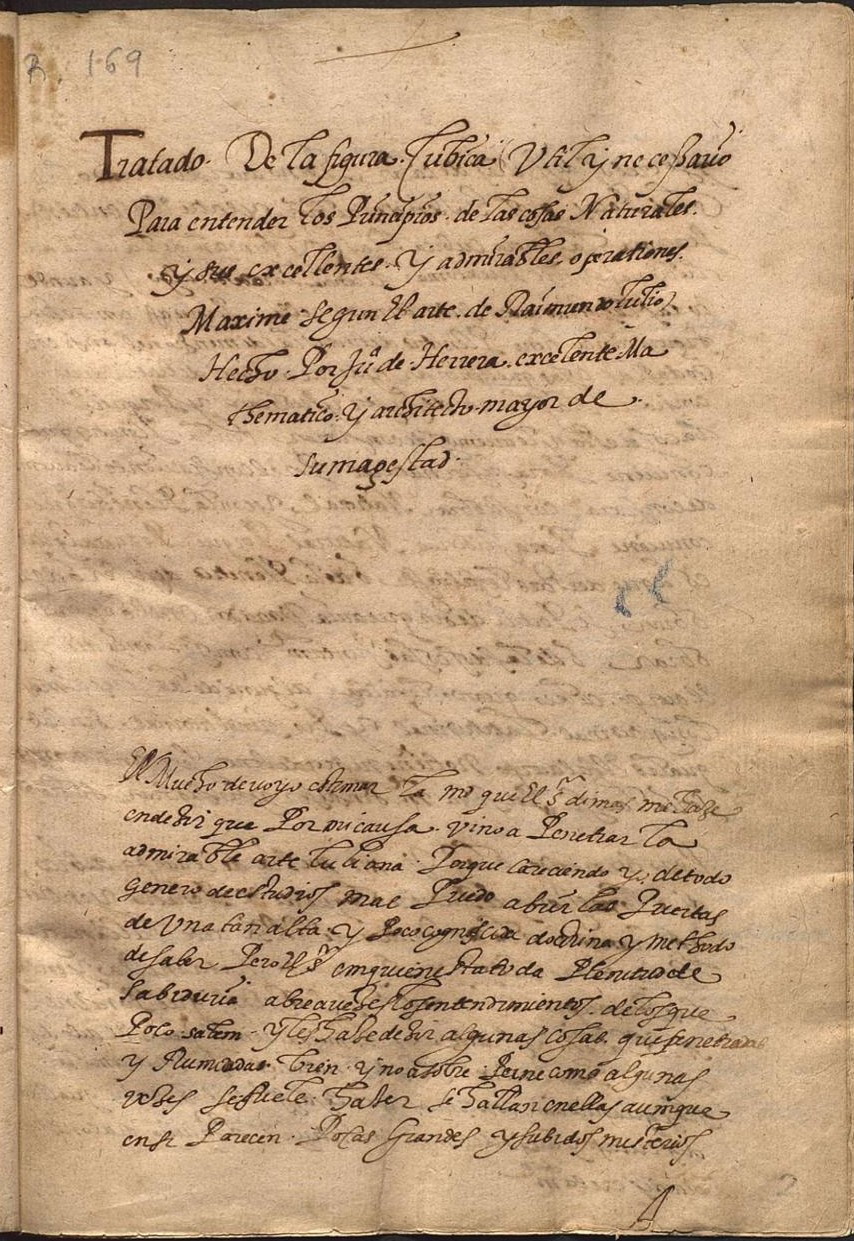 R. 169
Tratado. De la figura. Cubica Util y necessario
Para entender los Principios. de las cosas Naturales.
y sus excellentes. y admirables. operationes.
Maxime segun El arte. de Raimundo lulio
Hecho. Por Juº de Herrera. excelente Ma
thematico. y architecto. mayor de
su magestad.
Mucho devo yo estimar la md que El sr dimas me haze
en dezir que Por mi causa. vino a Penetrar la
admirable arte luliana. Porque careciendo yo de todo
genero de estudios mal Puedo abrir las Puertas
de Una tan alta. y Poco cognoscida doctrina y methodo
de saber Pero El sr en quien esta toda Plenitud de
sabiduria abre a vezes los entendimientos. de los que
Poco saben. y les haze dezir algunas cosas. que penetradas
y Rumiadas bien y no a sobre Peine como algunas
vezes se suele. hazer se hallan en ellas aunque
en si Parecen. Pocas Grandes y subidos misterios